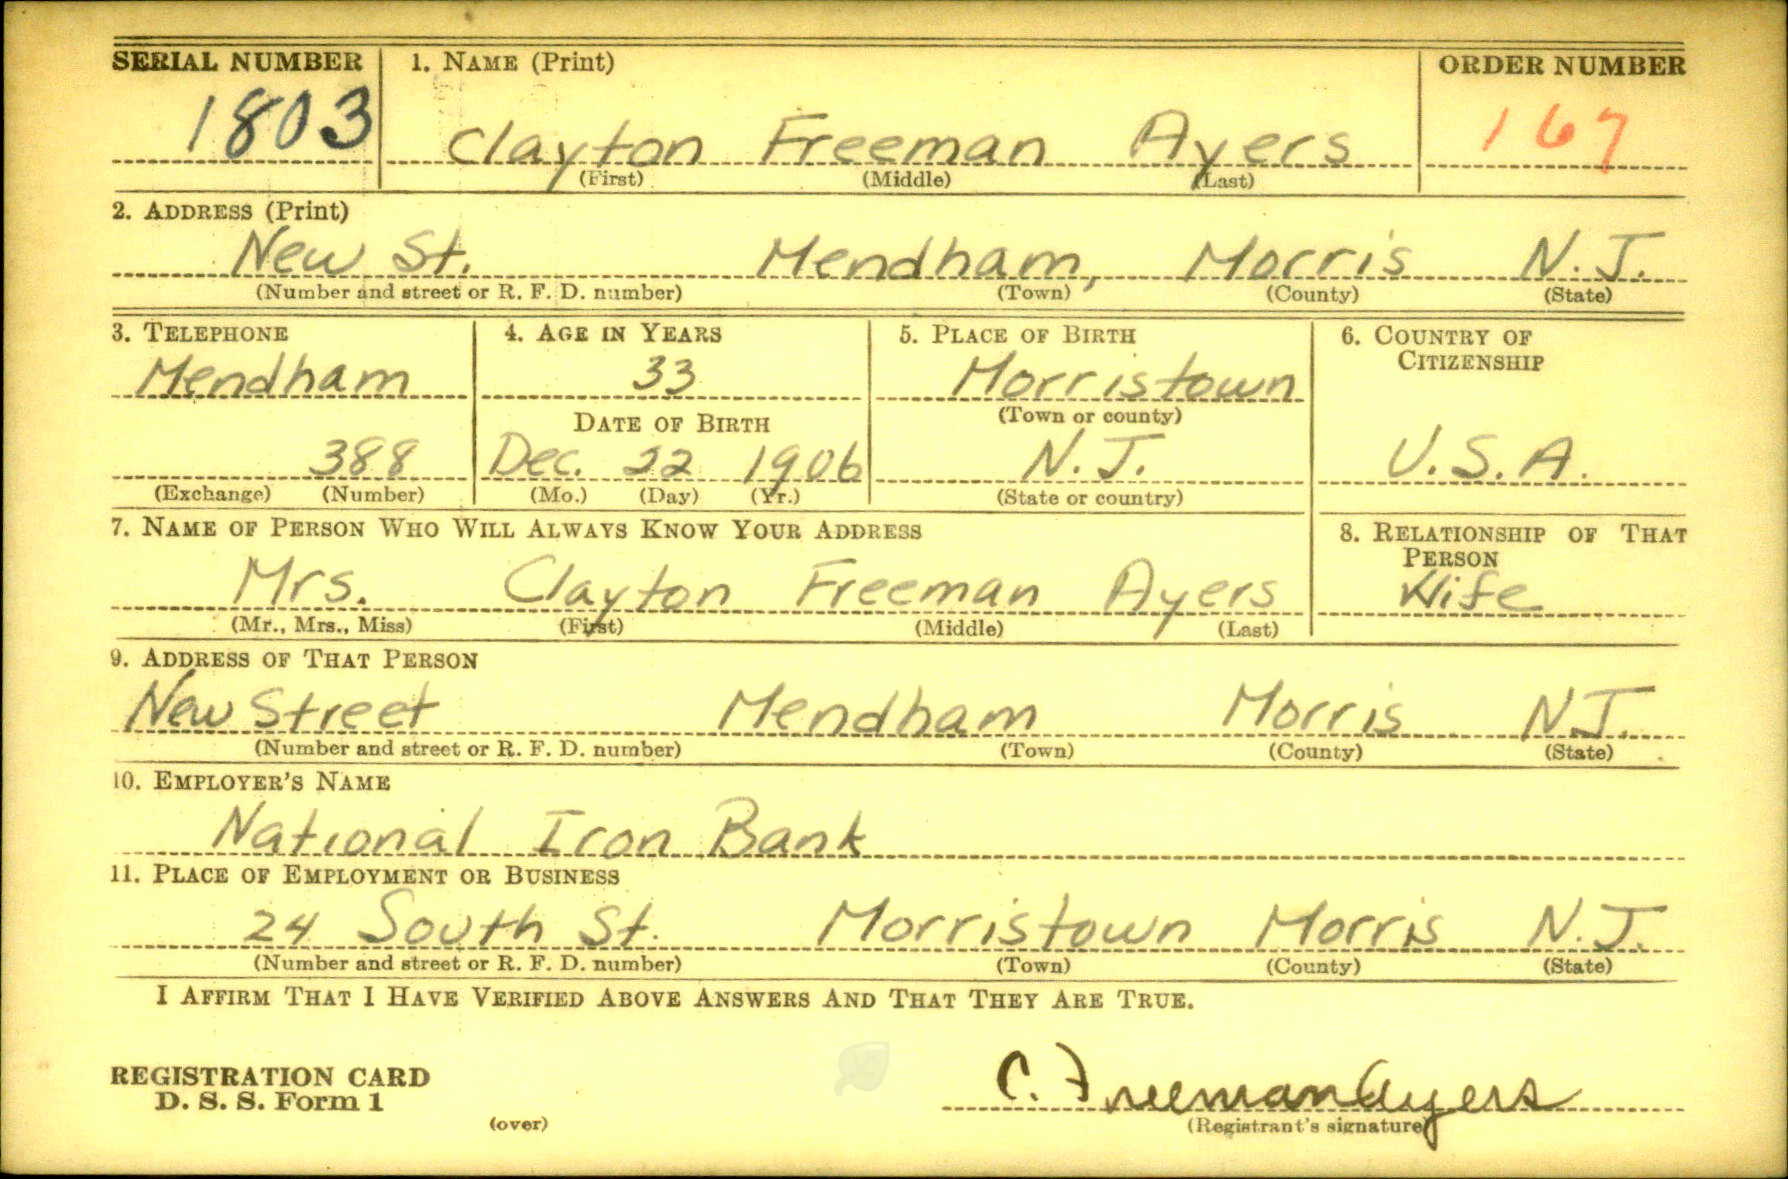 SERIAL NUMBER 1. NAME (Print) ORDER NUMBER
1803 Clayton Freeman Ayers 167
(First) (Middle) (Last)
2. ADDRESS (Print)
New St. Mendham, Morris N. J.
(Number and street or R. F. D. number) (Town) (County) (State)
3. TELEPHONE 4. AGE IN YEARS 5. PLACE OF BIRTH 6. COUNTRY OF
CITIZENSHIP
Mendham 33 Morristown
DATE OF BIRTH (Town or county)
388 Dec. 22 1906 N. J. U. S. A.
(Exchange) (Number) (Mo.) (Day) (Yr.) (State or country)
7. NAME OF PERSON WHO WILL ALWAYS KNOW YOUR ADDRESS 8. RELATIONSHIP OF THAT
PERSON
Mrs. Clayton Freeman Ayers Wife
(Mr., Mrs., Miss) (First) (Middle) (Last)
9. ADDRESS OF THAT PERSON
New Street Mendham Morris N J.
(Number and street or R. F. D. number) (Town) (County) (State)
10. EMPLOYER'S NAME
National Iron Bank
11. PLACE OF EMPLOYMENT OR BUSINESS
24 South St. Morristown Morris N. J.
(Number and street or R. F. D. number) (Town) (County) (State)
I AFFIRM THAT I HAVE VERIFIED ABOVE ANSWERS AND THAT THEY ARE TRUE.
REGISTRATION CARD
D. S. S. Form 1
C. Freeman Ayers
(over) (Registrant's signature)